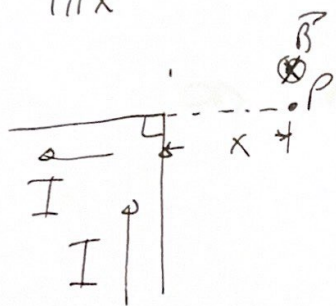 B
P
x
I
I